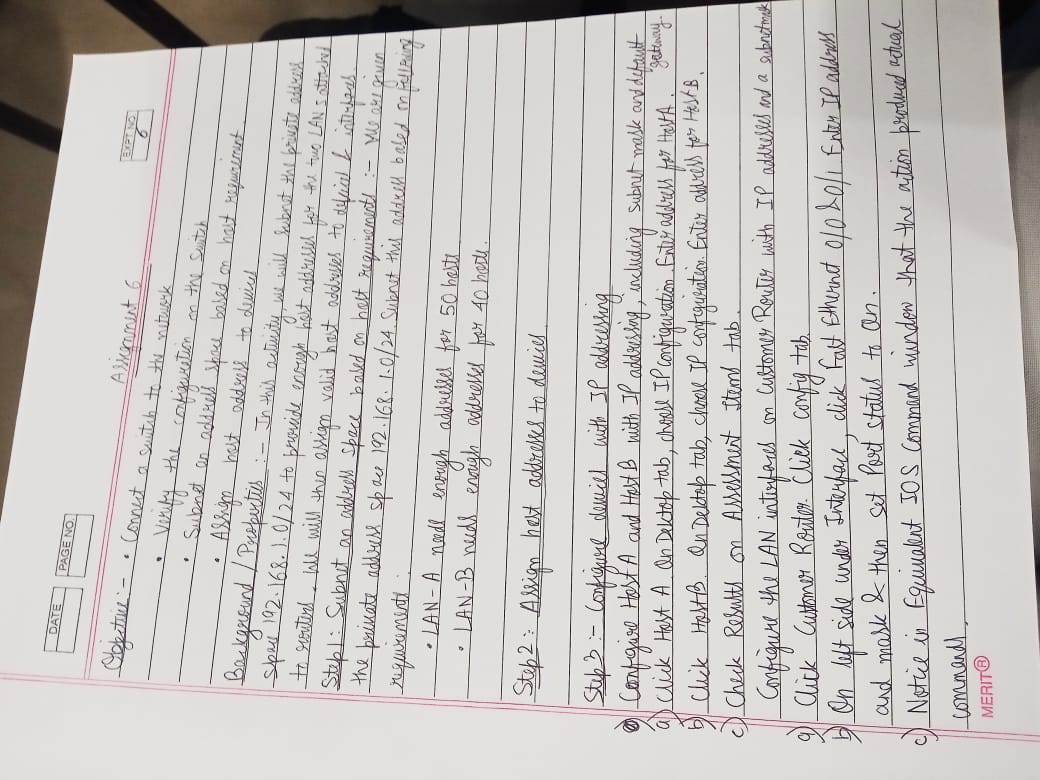 DATE
PAGE NO.
EXPT. NO.
6
Assignment 6
Objective :- • Connect a switch to the network
• Verify the configuration on the switch
• Subnet an address space based on host requirement
• Assign host address to devices
Background / Properties :- In this activity, we will subnet the private address
space 192.168.1.0/24 to provide enough host addresses for the two LANs attached
to routers. We will then assign valid host addresses to & interfaces.
Step 1: Subnet an address space based on host requirements :- We are given
the private address space 192.168.1.0/24. Subnet this address based on following
requirements :
• LAN-A needs enough addresses for 50 hosts
• LAN-B needs enough addresses for 40 hosts.
Step 2 : Assign host addresses to devices
Step 3 :- Configure devices with IP addressing
Configure Host A and Host B with IP addressing, including subnet mask and default
gateway.
a) Click Host A. On Desktop tab, choose IP configuration. Enter address for Host A.
b) Click Host B. On Desktop tab, choose IP configuration. Enter address for Host B.
c) Check Results on Assessment Items tab.
Configure the LAN interfaces on Customer Router with IP addresses and a subnet mask
a) Click Customer Router. Click config tab.
b) On left side under Interface, click Fast Ethernet 0/0 & 0/1. Enter IP address
and mask & then set Port status to On.
c) Notice in Equivalent IOS Command window that the action produced actual
commands.
MERIT®